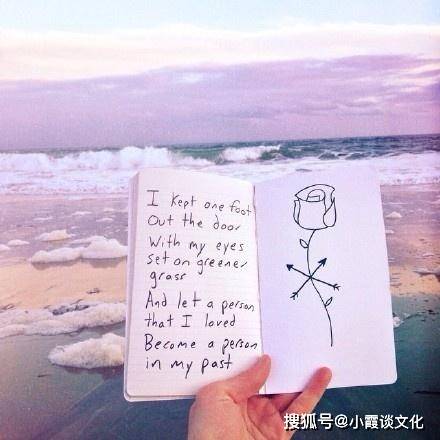 I kept one foot
Out the door
With my eyes
set on greener
grass
And let a person
that I loved
Become a person
in my past
搜狐号@小霞谈文化